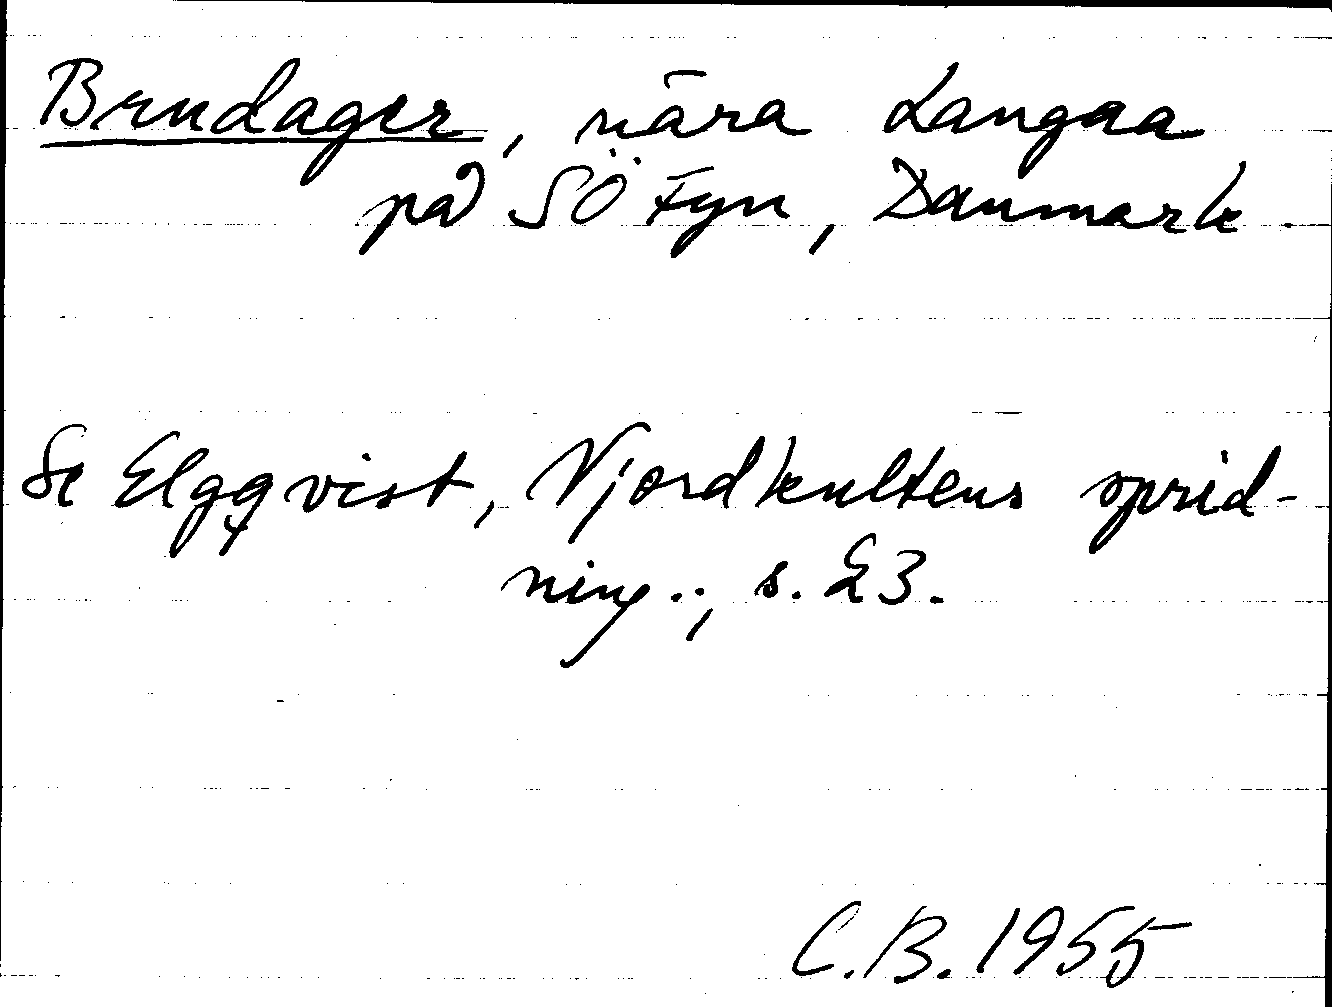 Brudager, nära Langaa
på SÖ Fyn, Danmark.
Se Elgqvist, Njordkultens sprid-
ning.., s. 23.
C.B. 1955